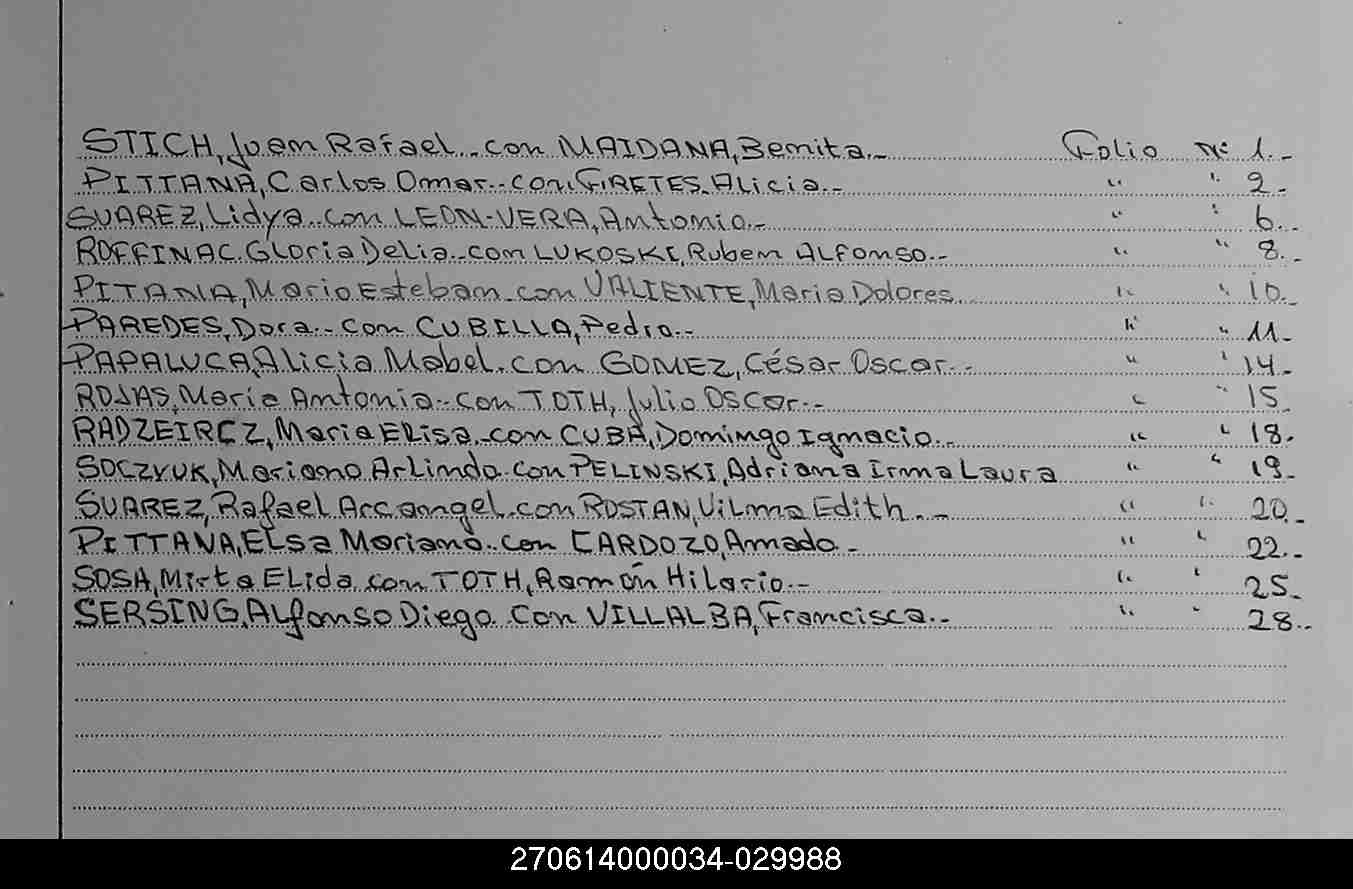 STICH, Juan Rafael.. con MAIDANA, Benita.- Folio Nº 1.-
PITTANA, Carlos Omar.- con GIRETES. Alicia.- " " 2.-
SUAREZ, Lidya.. con LEON-VERA, Antonio.- " " 6.-
ROFFINAC. Gloria Delia.- con LUKOSKI, Ruben ALFonso.- " " 8.-
PITANA, Mario Esteban.. con VALIENTE, Maria Dolores. " " 10.-
PAREDES, Dora.- con CUBILLA, Pedro.- " " 11.-
PAPALUCA, Alicia Mabel. con GOMEZ, César Oscar.- " " 14.-
ROJAS, Maria Antonia.- con TOTH, Julio Oscar.- " " 15.
RADZEIRCZ, Maria ELisa.- con CUBA, Domingo Ignacio.- " " 18.-
SOCZYUK, Mariano ArLindo. con PELINSKI, Adriana Irma Laura " " 19.-
SUAREZ, Rafael Arcangel. con ROSTAN, ViLma Edith.- " " 20.-
PITTANA, ELsa Moriano.. con CARDOZO, Amado.- " " 22.-
SOSA, Mirta ELida. con TOTH, Ramón Hilario.- " " 25.-
SERSING, ALfonso Diego. con VILLALBA, Francisca.- " " 28.-
270614000034-029988